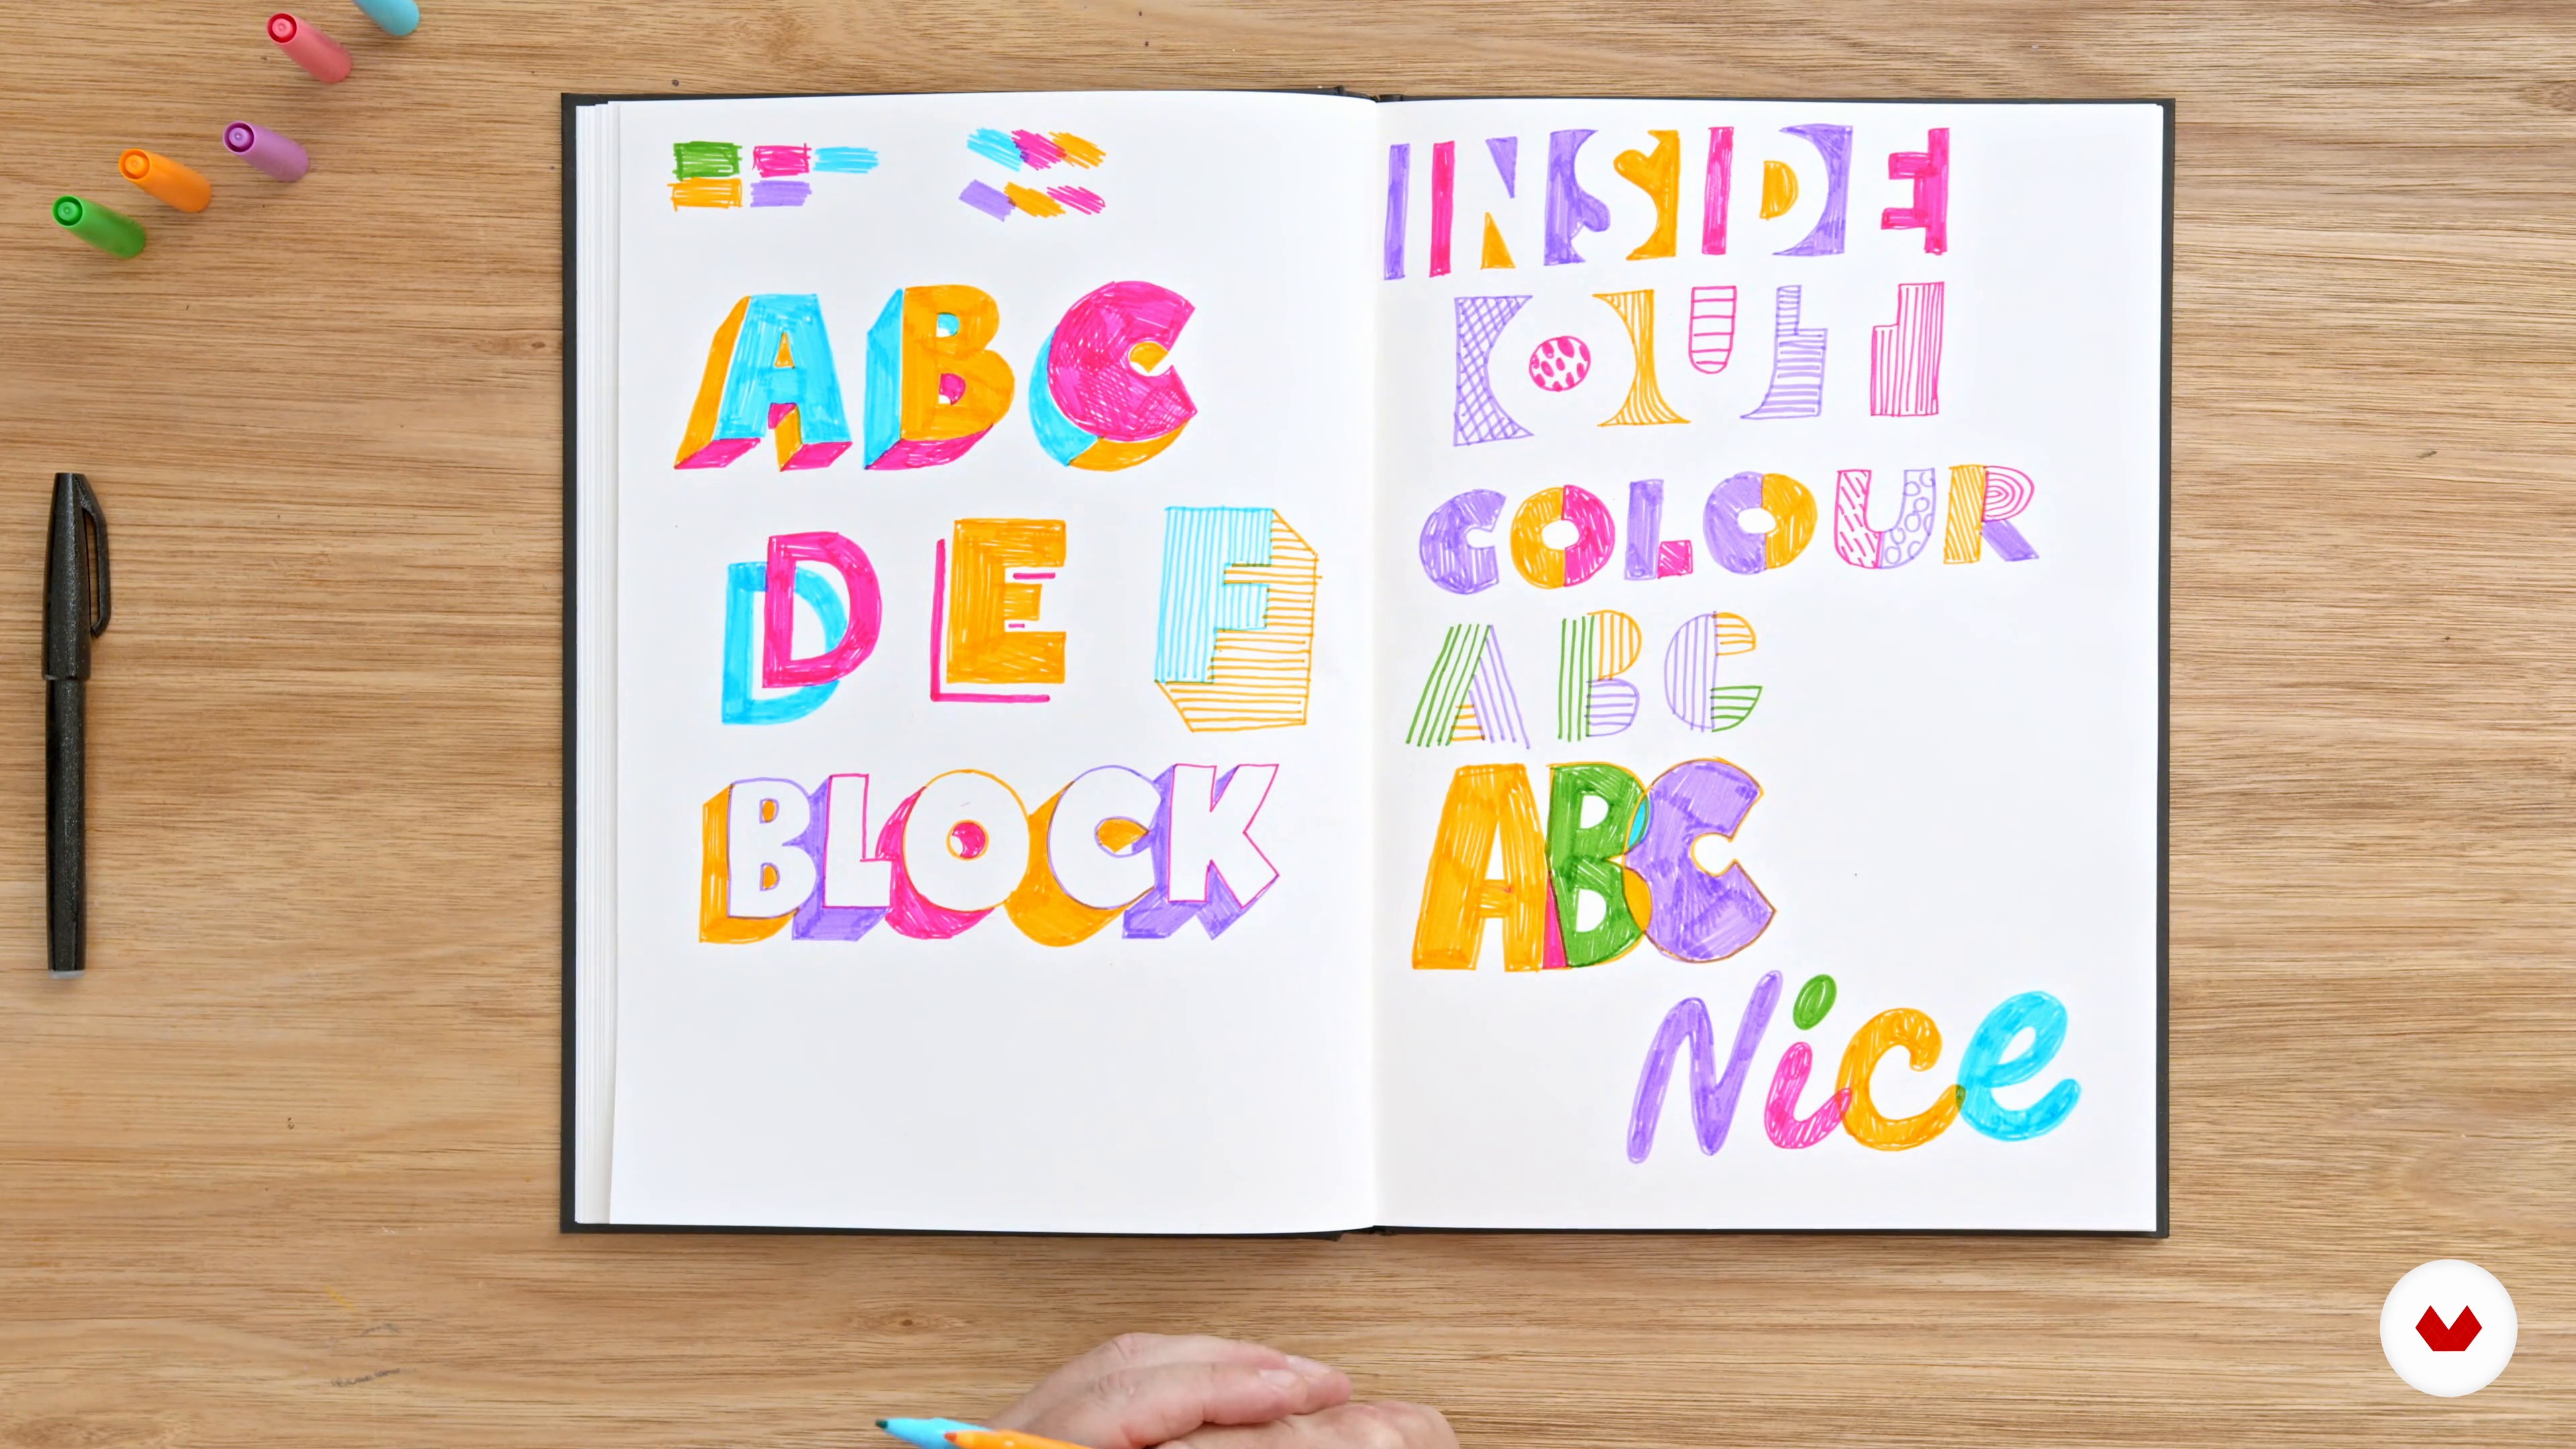 ABC
DEF
BLOCK
INSIDE
OUT
COLOUR
ABC
ABC
Nice